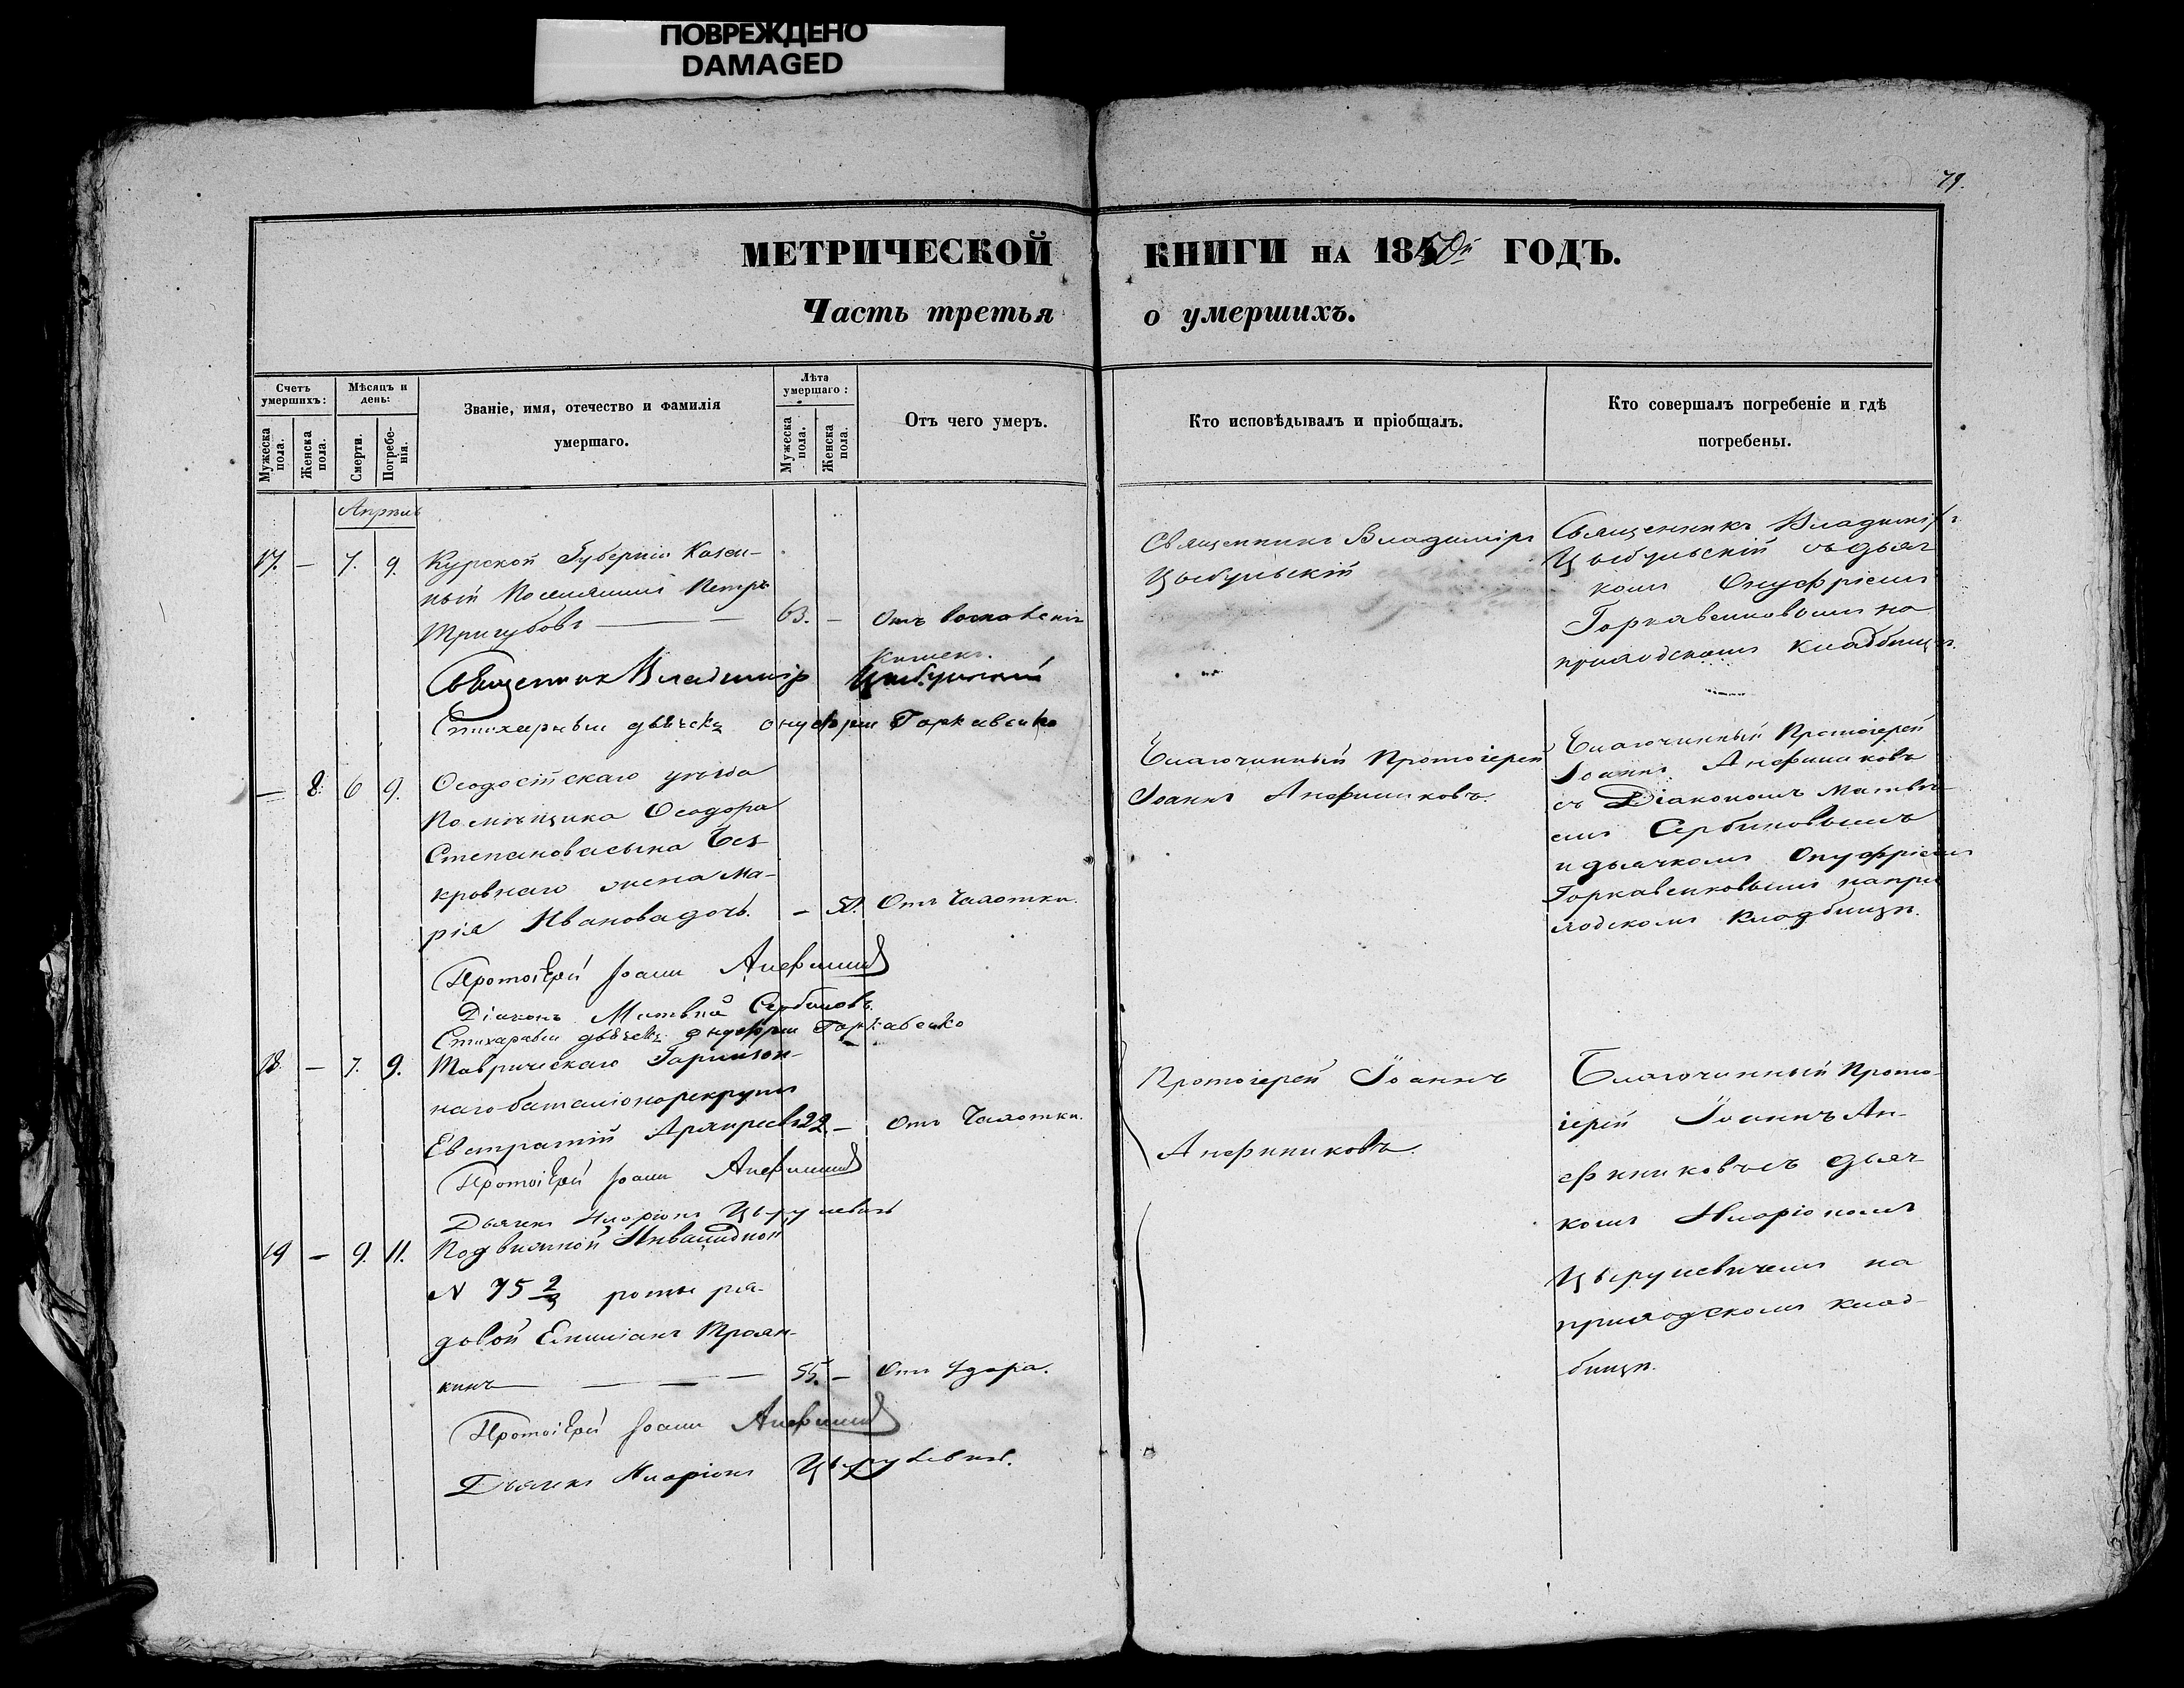 ПОВРЕЖДЕНО
DAMAGED
79.
МЕТРИЧЕСКОЙ КНИГИ НА 1850й ГОДЪ.
Часть третья о умершихъ.
Счетъ умершихъ:
Мужеска пола.
Женска пола.
Мѣсяцъ и день:
Смерти.
Погребенія.
Званіе, имя, отечество и фамилія
умершаго.
Лѣта умершаго:
Мужеска пола.
Женска пола.
Отъ чего умеръ.
Кто исповѣдывалъ и пріобщалъ.
Кто совершалъ погребеніе и гдѣ
погребены.
Апрѣль
17. — 7. 9. Курской Губерніи Казен-
ный Поселянинъ Петръ
Тригубовъ — 63. — Отъ воспаленія
кишекъ.
Священникъ Владиміръ Цыбульскій
Стихарный дьячекъ Онуфрій Горкавенко
Священникъ Владиміръ
Цыбульскій
Священникъ Владиміръ
Цыбульскій съ дьяч
комъ Онуфріемъ
Горкавенковымъ на
приходскомъ кладбищѣ.
— 8. 6 9. Ѳеодосійскаго уѣзда
Помѣщика Ѳеодора
Степанова сына Без-
кровнаго жена Ма-
рія Иванова дочь. — 50. Отъ Чахотки.
Протоіерей Іоаннъ
Діаконъ Матвѣй Сербиновъ.
Стихарный дьячекъ Онуфрій Горкавенко
Благочинный Протоіерей
Іоаннъ Анефиниковъ.
Благочинный Протоіерей
Іоаннъ Анефиниковъ
съ Діакономъ Матвѣ-
емъ Сербиновымъ
и дьячкомъ Онуфріемъ
Горкавенковымъ на при
ходскомъ кладбищѣ.
18. — 7. 9. Таврическаго Гарнизон-
наго баталіона рекрутъ
Евстратій 22 — Отъ Чахотки.
Протоіерей Іоаннъ
Дьячекъ Иларіонъ Цьрулевичъ
Протоіерей Іоаннъ
Анефиниковъ.
Благочинный Прото-
іерей Іоаннъ Ан-
ефиниковъ съ дьяч
комъ Иларіономъ
Цьрулевичемъ на
приходскомъ клад-
бищѣ.
19 — 9. 11. Подвижной Инвалидной
N 75 2/3 роты ря-
довой Емиліанъ Троян-
кинъ — 55. — Отъ Удара.
Протоіерей Іоаннъ
Дьячекъ Иларіонъ Цьрулевичъ.